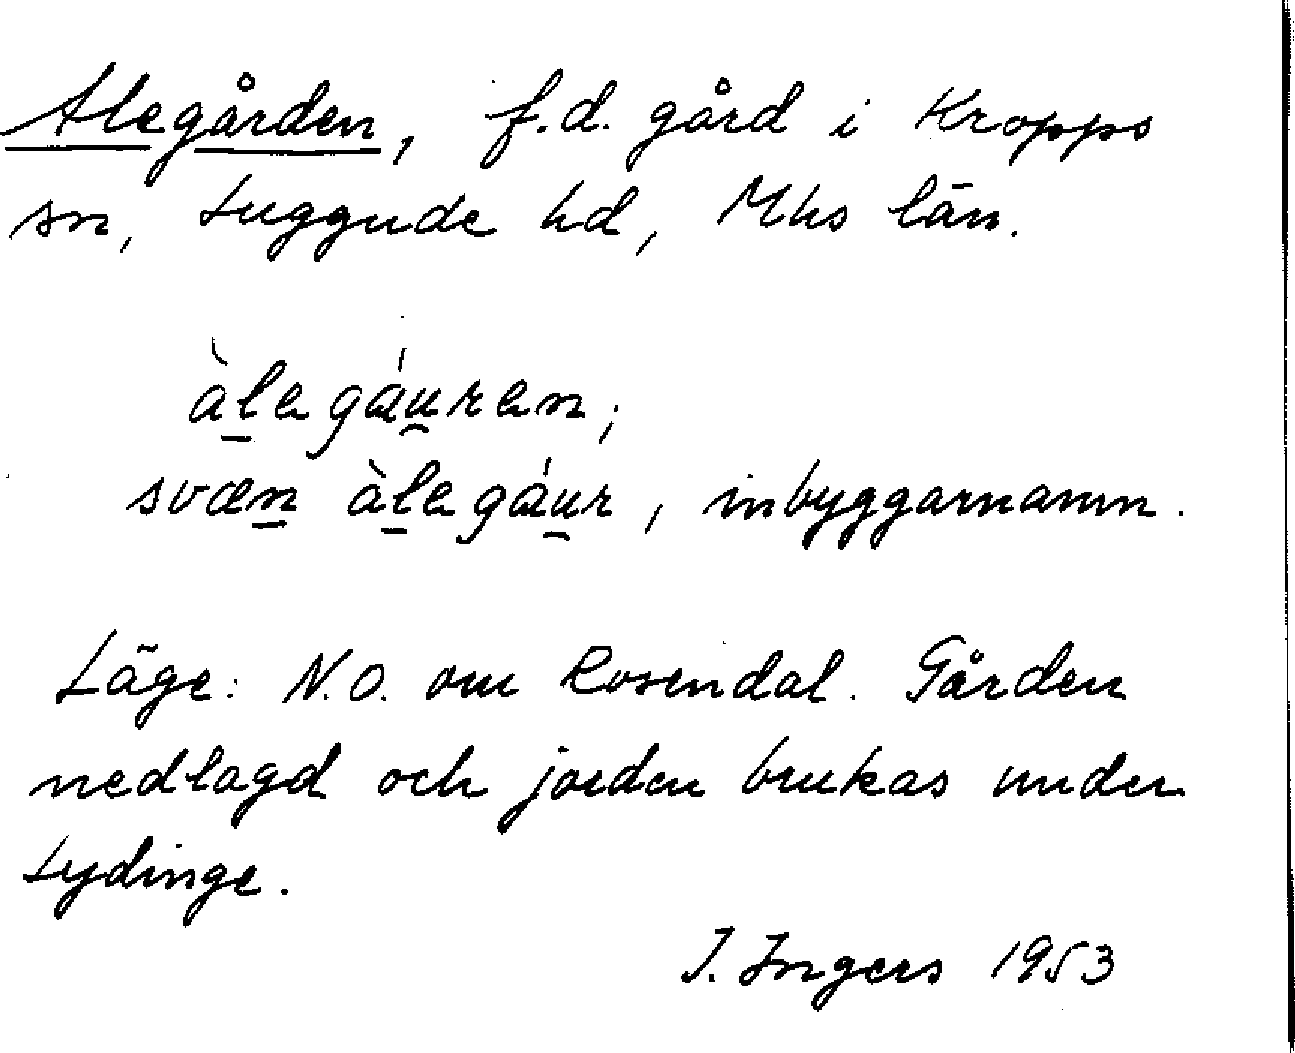 Alegården, f.d. gård i Kropps
sn, Luggude hd, Mhs län.
àlegáuren;
svæn àlegáur, inbyggarnamn.
Läge: N.O. om Rosendal. Gården
nedlagd och jorden brukas under
Lydinge.
I. Ingers 1953